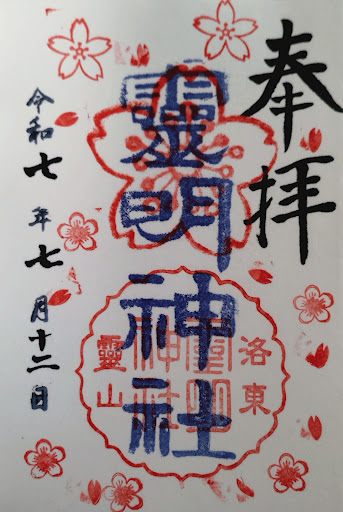 奉拝
靈明神社
洛東
靈明神社
靈山
令和七年七月十二日